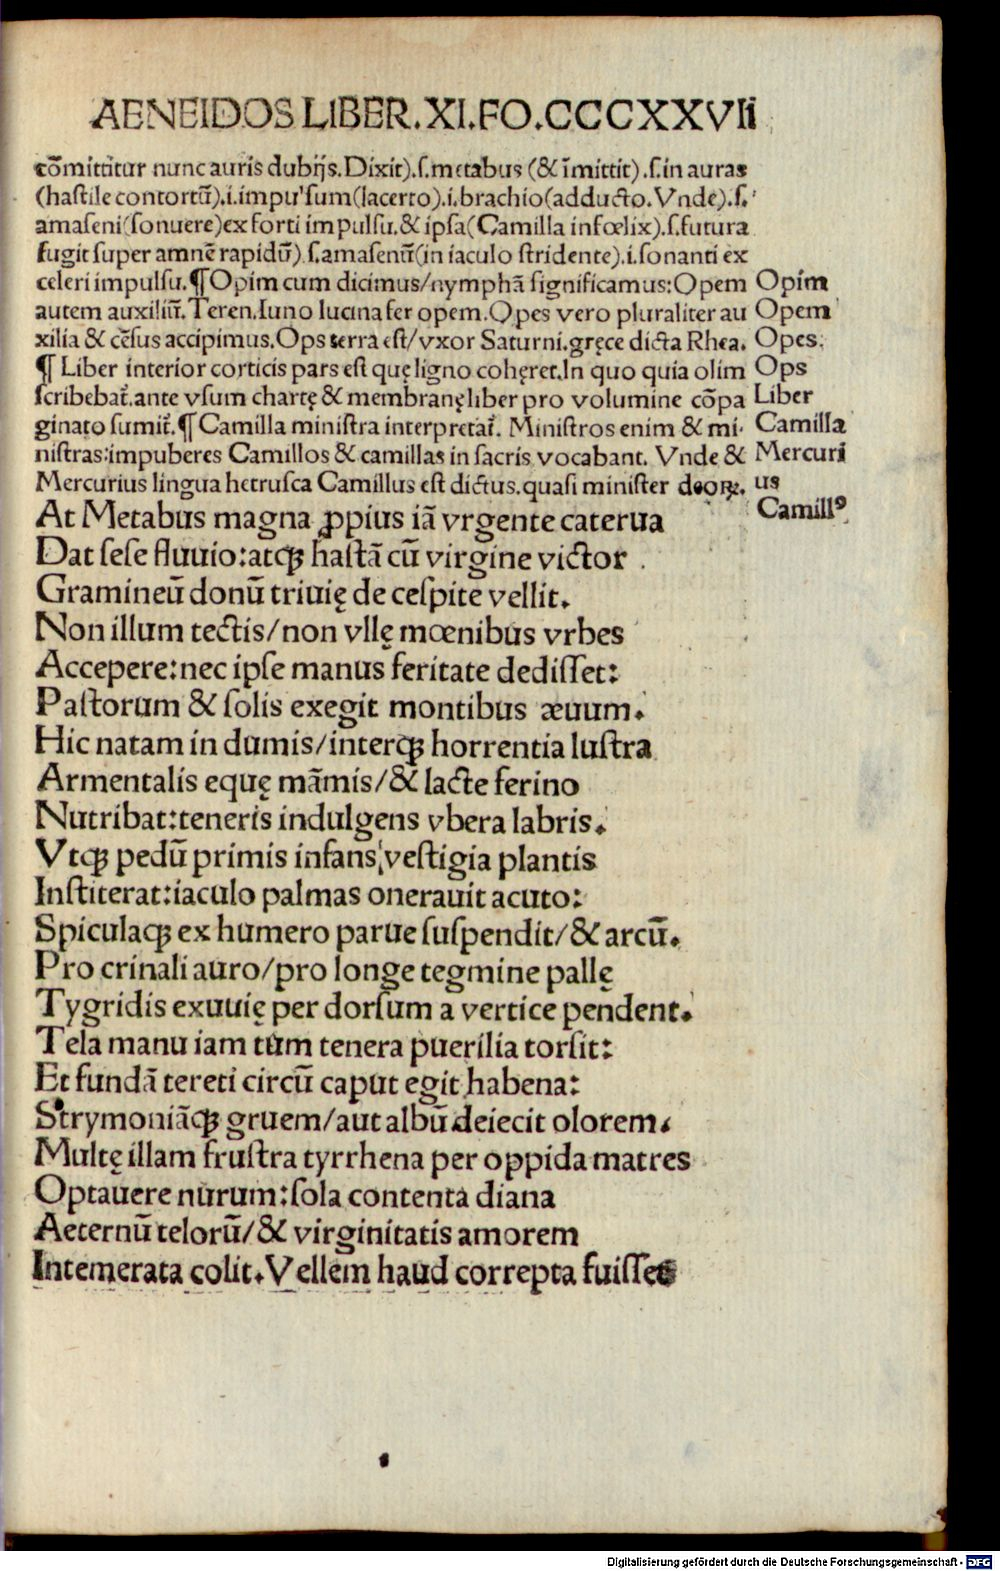 AENEIDOS LIBER. XI. FO. CCCXXVII
cōmittitur nunc auris dubijs. Dixit).ſ.metabus (& īmittit).ſ.in auras
(haſtile contortū).i.impulſum(lacerto).i.brachio(adducto. Vnde).ſ.
amaſeni(ſonuere)ex forti impulſu.& ipſa(Camilla infœlix).ſ.futura
fugit ſuper amnē rapidū).ſ.amaſenū(in iaculo ſtridente).i.ſonanti ex
celeri impulſu.¶Opim cum dicimus/nymphā ſignificamus:Opem
autem auxiliū. Teren.Iuno lucina fer opem.Opes vero pluraliter au
xilia & cēſus accipimus.Ops terra eſt/vxor Saturni.gręce dicta Rhea.
¶ Liber interior corticis pars eſt quę ligno cohęret.In quo quia olim
ſcribebat̄.ante vſum chartę & membranę liber pro volumine cōpa
ginato ſumit̄.¶Camilla miniſtra interpretat̄. Miniſtros enim & mi-
niſtras:impuberes Camillos & camillas in ſacris vocabant. Vnde &
Mercurius lingua hetruſca Camillus eſt dictus.quaſi miniſter deoꝝ.
Opim
Opem
Opes.
Ops
Liber
Camilla
Mercuri
us
Camillꝰ
At Metabus magna ꝓpius iā vrgente caterua
Dat ſeſe fluuio:atqꝫ haſtā cū virgine victor
Gramineū donū triuię de ceſpite vellit.
Non illum tectis/non vllę mœnibus vrbes
Accepere:nec ipſe manus feritate dediſſet:
Paſtorum & ſolis exegit montibus æuum.
Hic natam in dumis/interqꝫ horrentia luſtra
Armentalis equę māmis/& lacte ferino
Nutribat:teneris indulgens vbera labris.
Vtqꝫ pedū primis infans veſtigia plantis
Inſtiterat:iaculo palmas onerauit acuto:
Spiculaqꝫ ex humero parue ſuſpendit/& arcū.
Pro crinali auro/pro longe tegmine pallę
Tygridis exuuię per dorſum a vertice pendent.
Tela manu iam tum tenera puerilia torſit:
Et fundā tereti circū caput egit habena:
Strymoniāqꝫ gruem/aut albū deiecit olorem.
Multę illam fruſtra tyrrhena per oppida matres
Optauere nurum:ſola contenta diana
Aeternū telorū/& virginitatis amorem
Intemerata colit.Vellem haud correpta fuiſſet
Digitalisierung gefördert durch die Deutsche Forschungsgemeinschaft - DFG